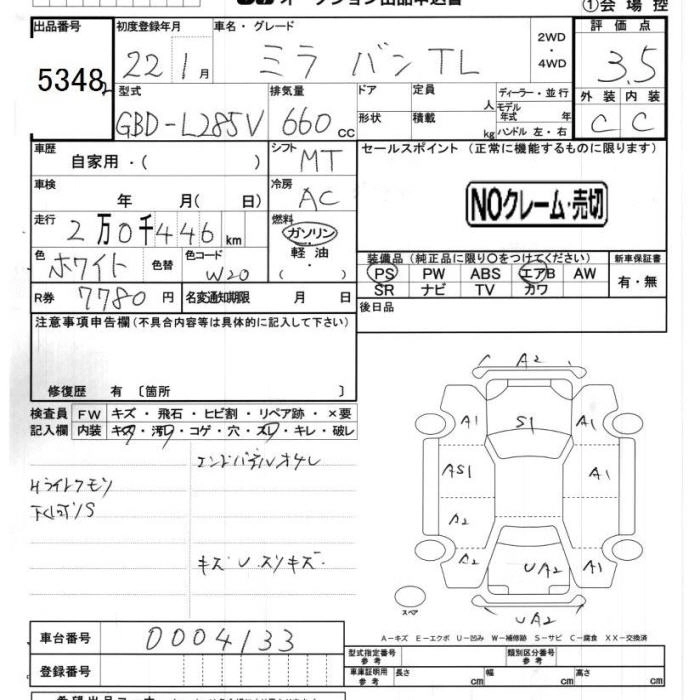 オークション出品申込書
①会場控
出品番号 初度登録年月 車名・グレード 評価点
5348 22 1月 ミラ バン TL 2WD・4WD 3.5
型式 排気量 ドア 定員 人 ディーラー・並行 外装 内装
GBD-L285V 660 cc 形状 積載 kg モデル年式 年 ハンドル 左・右 C C
車歴 自家用・( ) シフト MT セールスポイント (正常に機能するものに限ります)
車検 年 月( 日) 冷房 AC NOクレーム・売切
走行 2万0千446km 燃料 ガソリン 軽油 ・ ( )
色 ホワイト 色替 色コード W20
装備品 (純正品に限り○をつけてください) 新車保証書
PS PW ABS エアB AW 有・無
SR ナビ TV カワ
R券 7780円 名変通知期限 月 日 後日品
注意事項申告欄 (不具合内容等は具体的に記入して下さい)
修復歴 有 〔箇所 〕
検査員記入欄 FW キズ・飛石・ヒビ割・リペア跡・×要
内装 キズ・汚レ・コゲ・穴・スレ・キレ・破レ
Hライトクモリ
キズ U スリキズ
A2
A1 S1 A1
AS1 A1
A2
A2 UA2 A1
スペア
UA2
A-キズ E-エクボ U-凹み W-補修跡 S-サビ C-腐食 XX-交換済
車台番号 0004133
登録番号
型式指定番号 参考 類別区分番号 参考
車庫証明用 参考 長さ cm 幅 cm 高さ cm